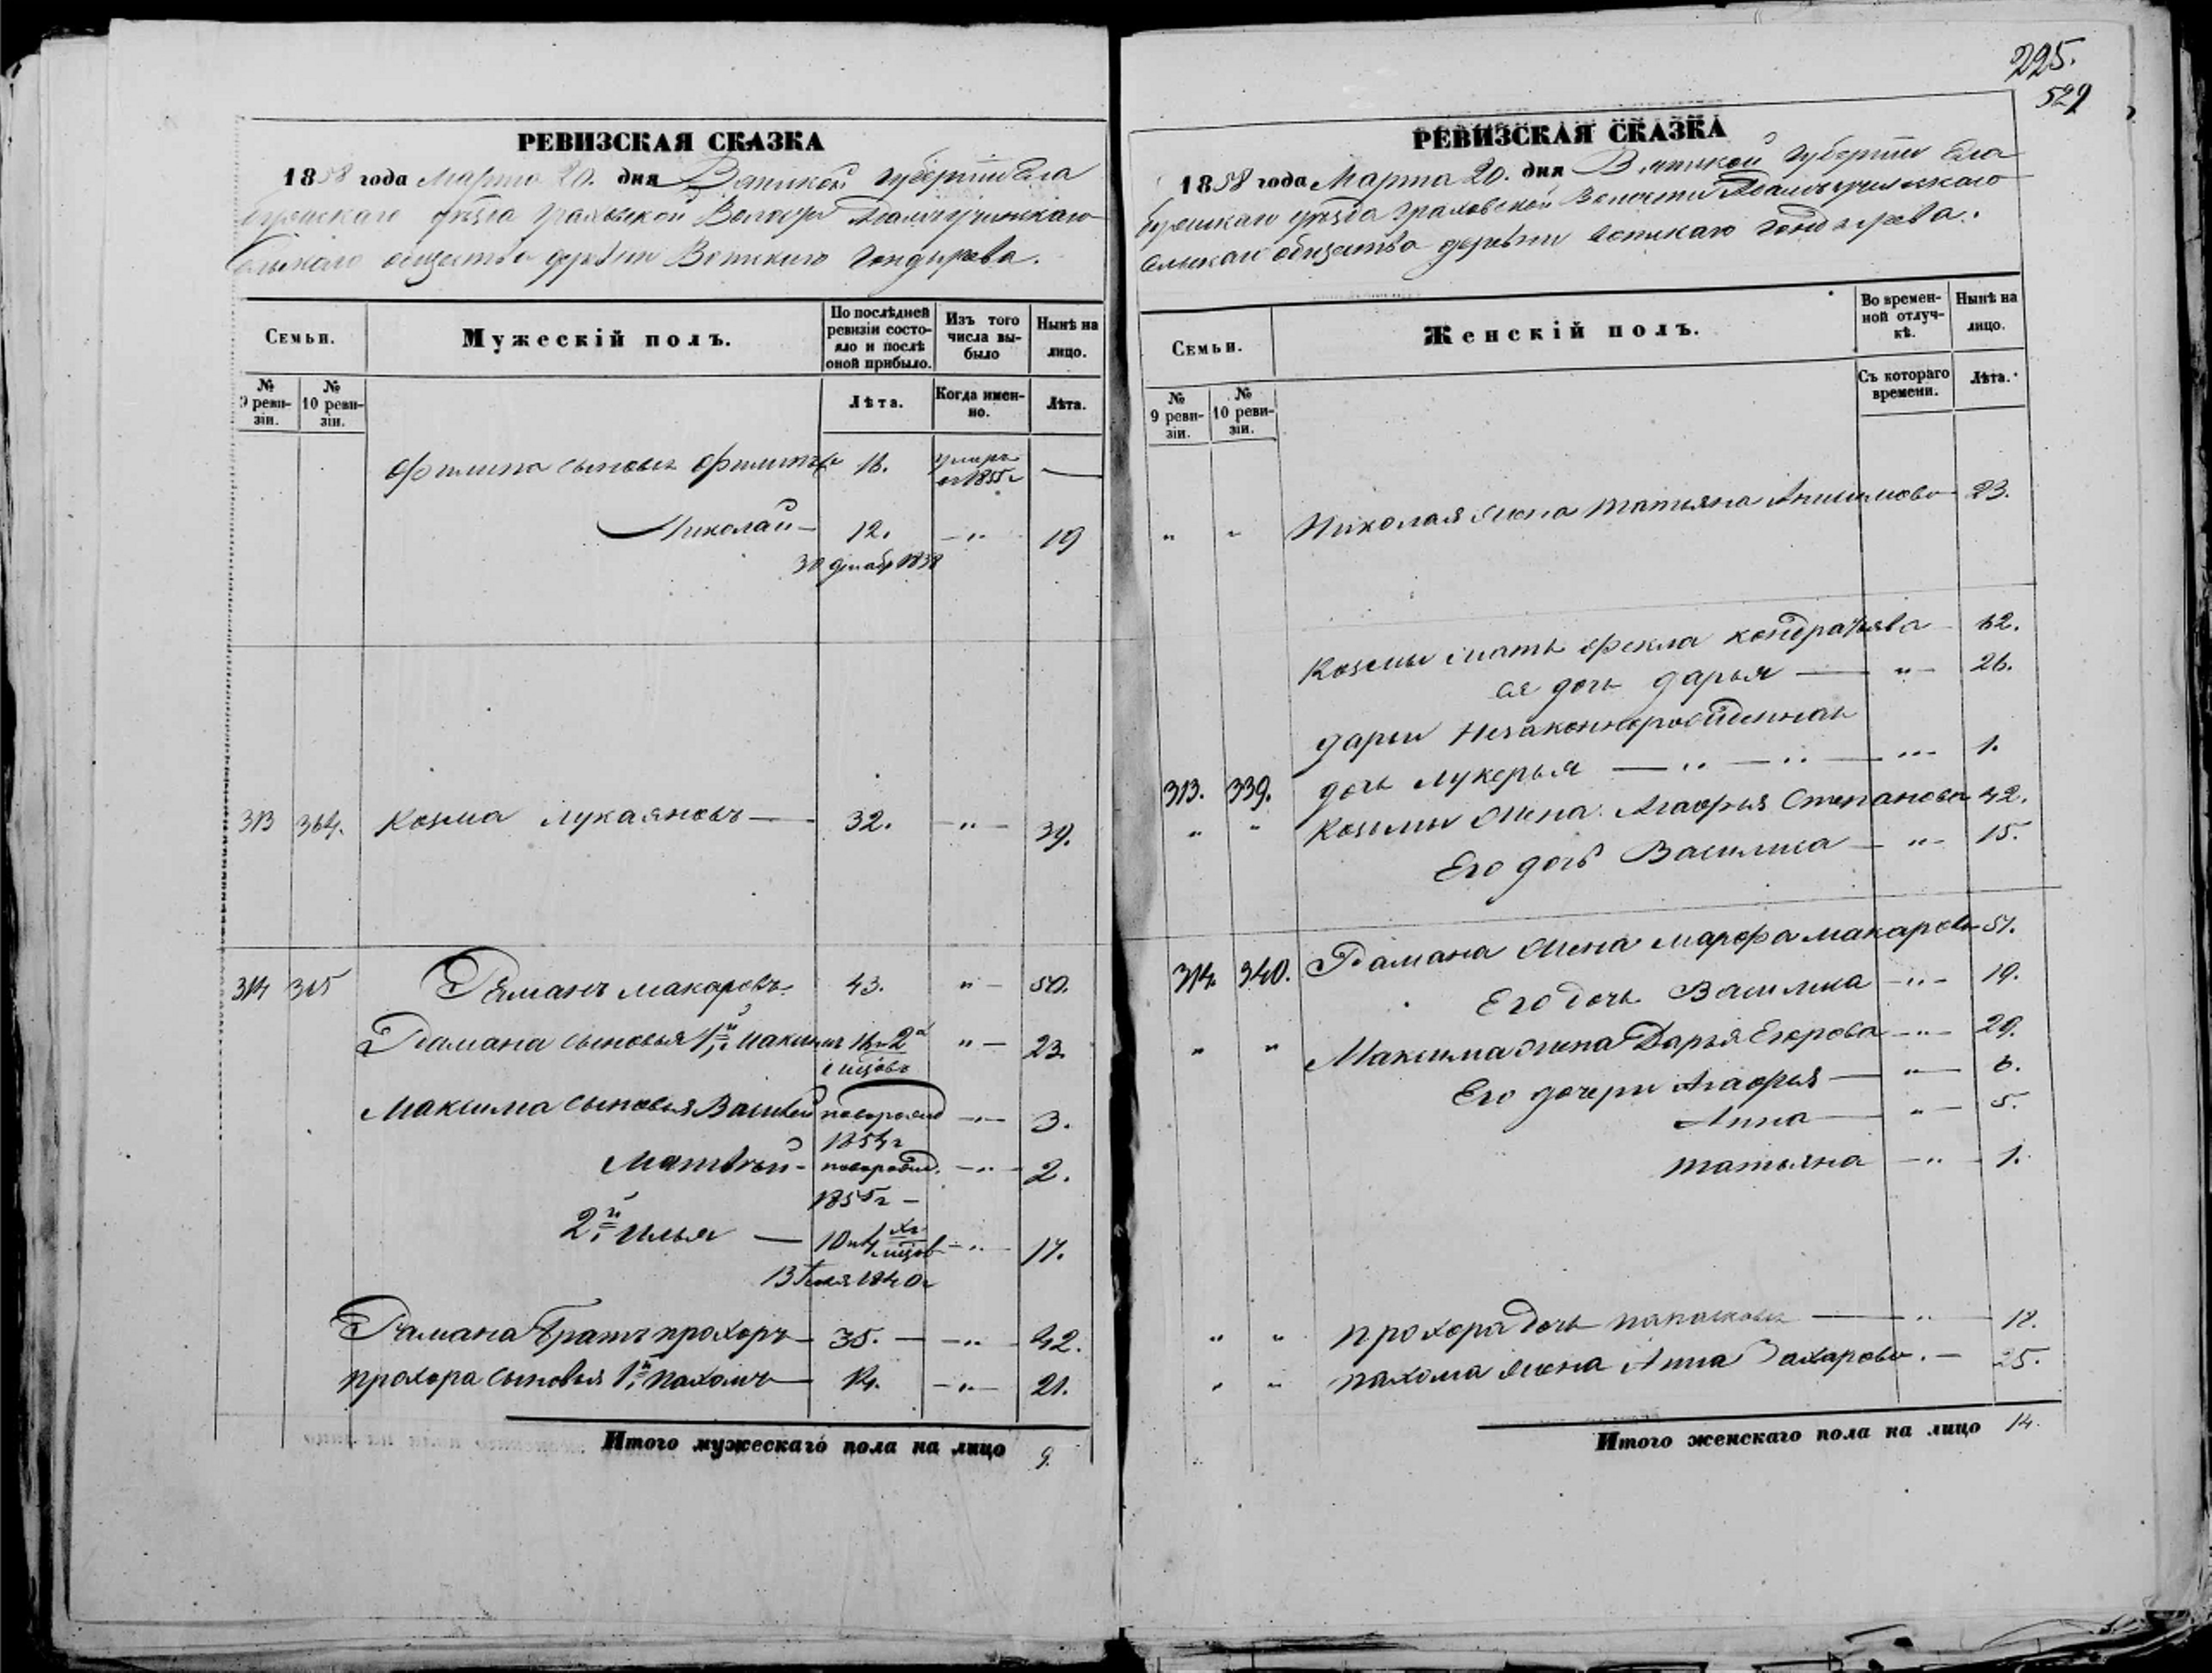 РЕВИЗСКАЯ СКАЗКА
1858 года Марта 20. дня Вятской губернии Ела
бужскаго уѣзда Граховской Волости
сельскаго общества деревни Вотскаго Гондырева.
Семьи.
Мужескій полъ.
По послѣдней ревизіи состо-
яло и послѣ оной прибыло.
Изъ того числа вы-
было
Нынѣ на лицо.
№ 9 реви-
зіи.
№ 10 реви-
зіи.
Лѣта.
Когда имен-
но.
Лѣта.
Филипа сыновья Филипъ 18. умеръ въ 1855 г —
Николай — 12. — " 19
30 декабр 1838
313 364. Козма Лукаяновъ — 32. — " — 39.
314 365 Раманъ Макаровъ 43. " — 50.
Рамана сыновья 1й Максимъ 16 и 2 " — 23.
мѣсяцовъ
Максима сыновья Василей новорожд — " — 3.
1854 г
Матвѣй — новорожд. — " — 2.
1855 г —
2й Илья — 10 и 4 мѣсяцов — " — 17.
13 Іюля 1840 г
Рамана братъ Прохоръ — 35. — — " — 42.
Прохора сыновья 1й Пахомъ — 14. — " — 21.
Итого мужескаго пола на лицо 9.
225.
529
РЕВИЗСКАЯ СКАЗКА
1858 года Марта 20. дня Вятской губернии Ела
бужскаго уѣзда Граховской Волости
сельскаго общества деревни Вотскаго Гондырева.
Семьи.
Женскій полъ.
Во времен-
ной отлуч-
кѣ.
Нынѣ на лицо.
№ 9 реви-
зіи.
№ 10 реви-
зіи.
Съ котораго времени.
Лѣта.
" " Николая жена Татьяна Анисимова — 23.
Козмы мать Фекла Кондратьева — 62.
ея дочь Дарья — " — 26.
Дарьи Незаконнорожденная
313. 339. дочь Лукерья — " — " — " — 1.
" " Козмы жена Агафья Степанова 42.
Его дочь Василиса — " — 15.
314. 340. Рамана жена Марфа Макарова 51.
Его дочь Василиса — " — 19.
" " Максима жена Дарья Егорова — " — 29.
Его дочери Агафья — " — 6.
Анна — " — 5.
Татьяна — " — 1.
" " Прохора дочь — " — 18.
" " Пахома жена Анна Захарова. — 25.
Итого женскаго пола на лицо 14.